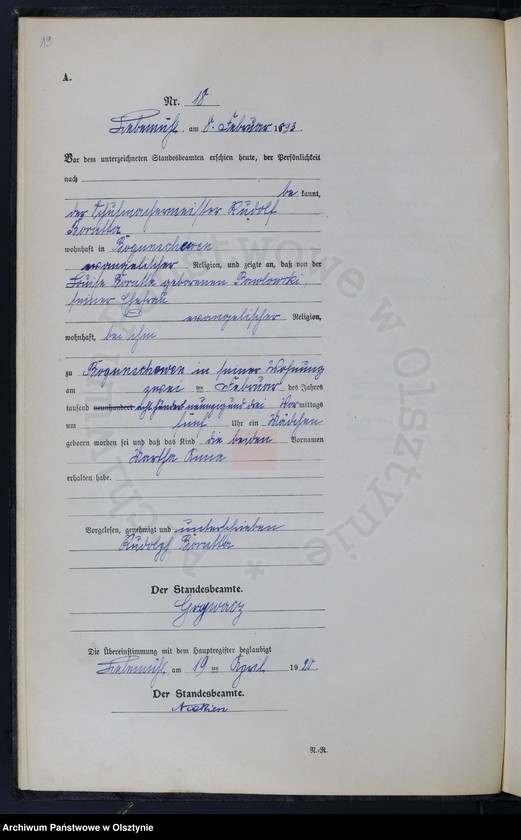 19
A.
Nr. 18
Liebemühl, am 8. Februar 1893.
Vor dem unterzeichneten Standesbeamten erschien heute, der Persönlichkeit
nach
be kannt,
der Schuhmachermeister Rudolf
Boratta
wohnhaft in Bogunschewen
evangelischer Religion, und zeigte an, daß von der
Louise Boratta geborenen Pawlowski,
seiner Ehefrau
evangelischer Religion,
wohnhaft, bei ihm
zu Bogunschewen in seiner Wohnung
am zwei ten Februar des Jahres
tausend neunhundert acht hundert neunzig und drei Vor mittags
um fünf Uhr ein Mädchen
geboren worden sei und daß das Kind die beiden Vornamen
Martha Anna
erhalten habe.
Vorgelesen, genehmigt und unterschrieben
Rudolph Boratta
Der Standesbeamte.
Grzywacz
Die Übereinstimmung mit dem Hauptregister beglaubigt
Liebemühl, am 19 ten April 1920
Der Standesbeamte.
N.-R.
Archiwum Państwowe w Olsztynie